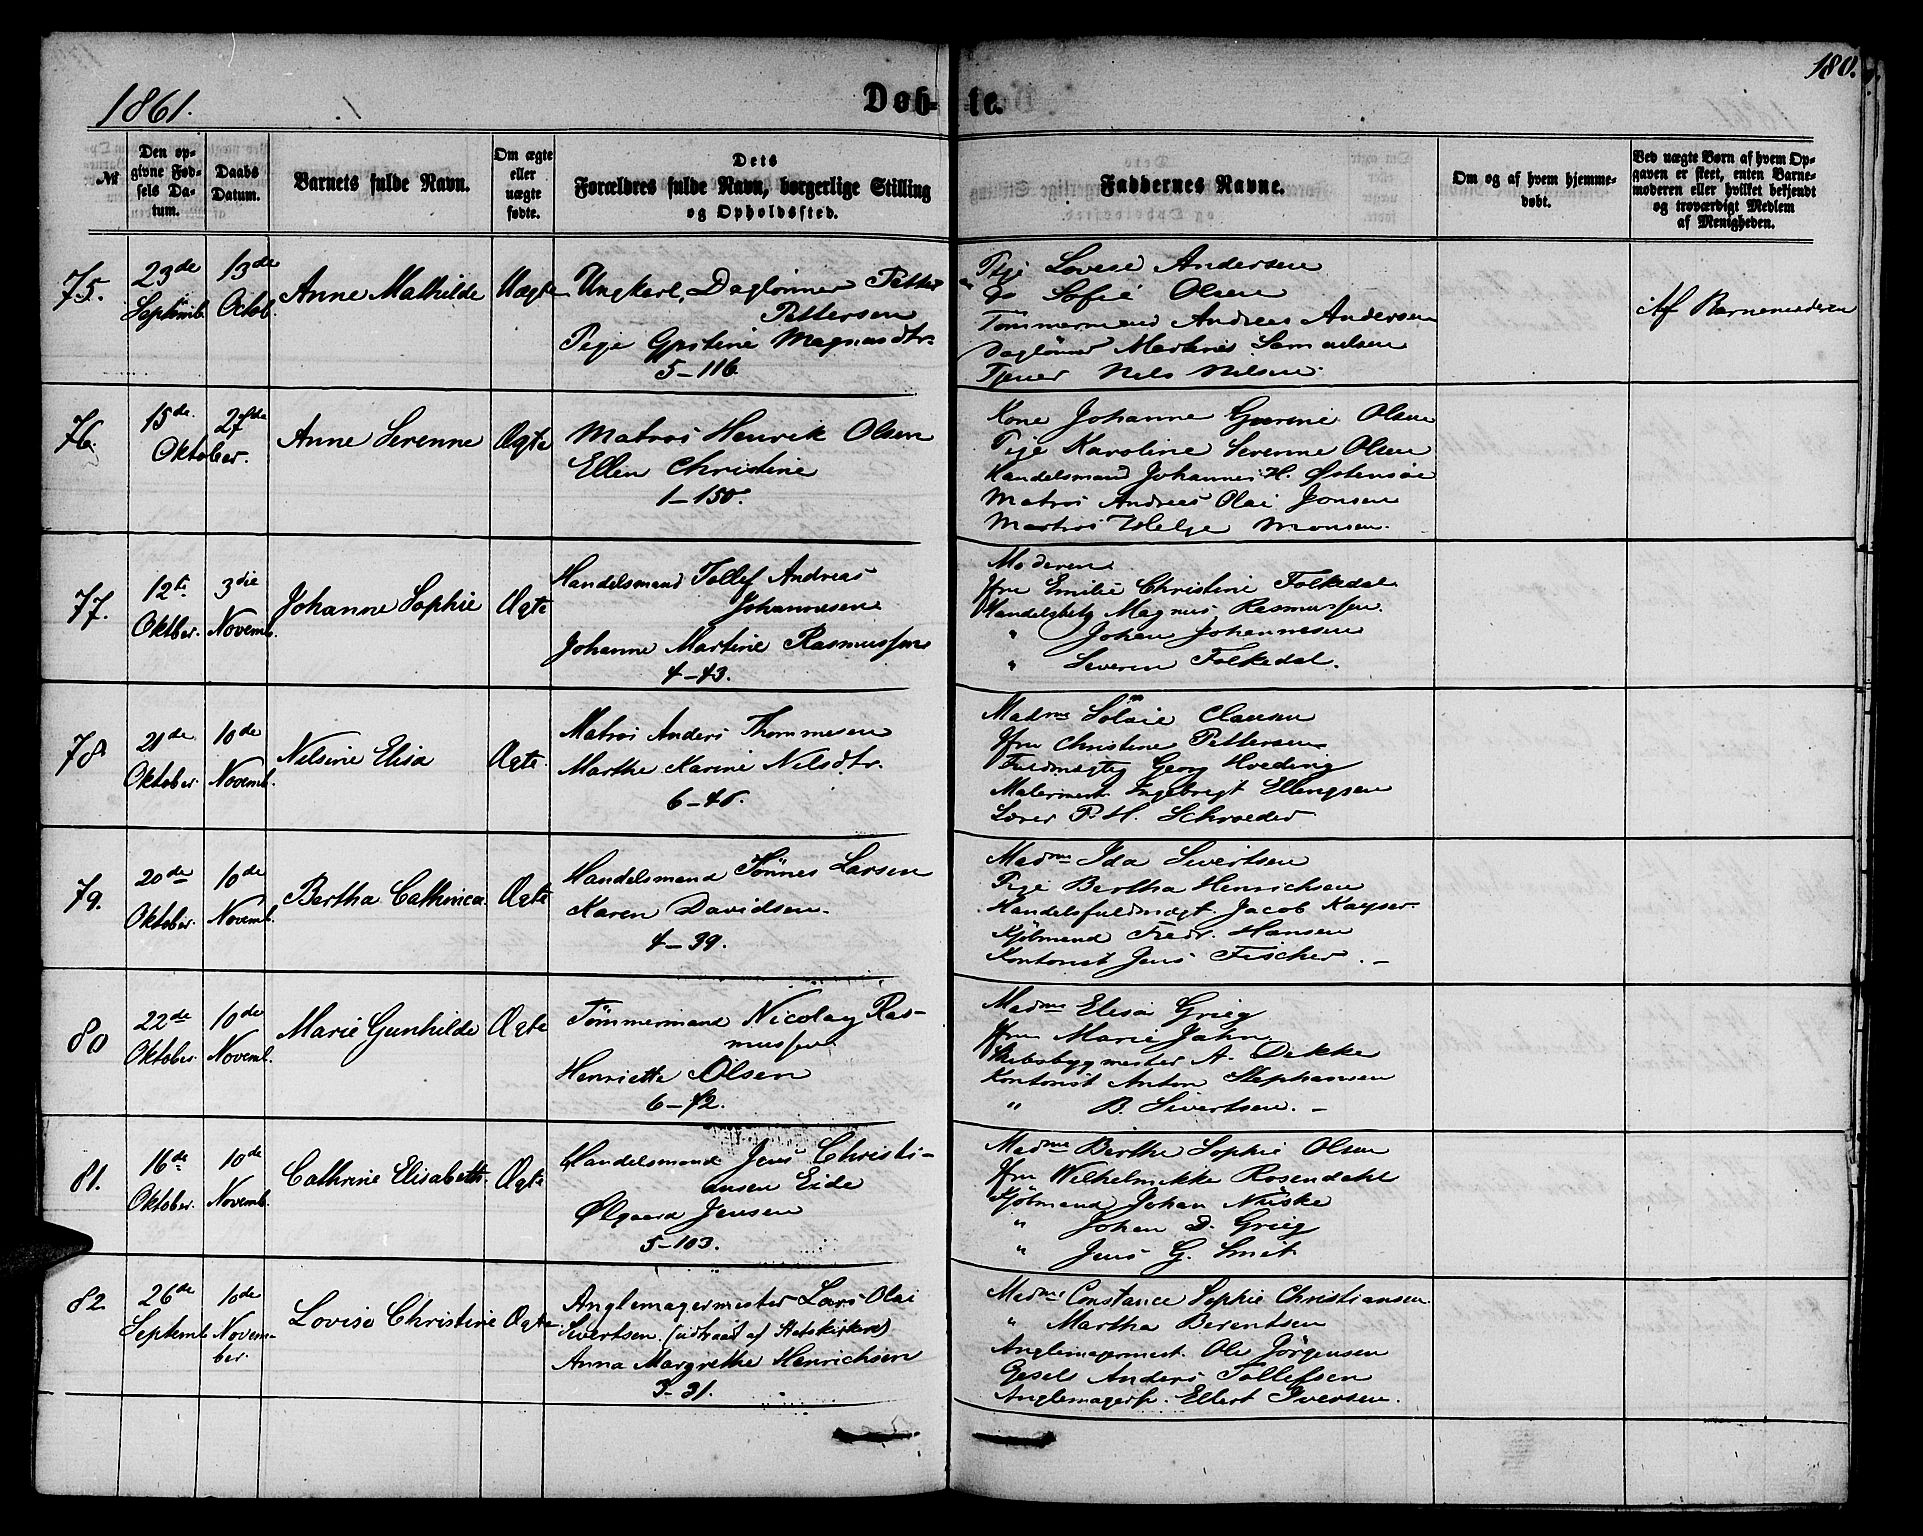 1861.
Døb-
te.
180.
№
Den op-
givne Fød-
sels Da-
tum.
Daabs
Datum.
Barnets fulde Navn.
Om ægte
eller
uægte
fødte.
Dets
Forældres fulde Navn, borgerlige Stilling
og Opholdssted.
Faddernes Navne.
Om og af hvem hjemme-
døbt.
Ved uægte Børn af hvem Op-
gaven er skeet, enten Barne-
moderen eller hvilket bekjendt
og troværdigt Medlem
af Menigheden.
75.
23de
Septemb.
13de
Octob.
Anne Mathilde
Uægte
Ungkarl, Daglønner Petter
Pettersen
Pige Gjertine Magnusdtr.
5-116.
Pige Lovise Andersen
do Sofie Olsen
Tømmermand Andreas Andersen
Daglønner Martines Samuelsen
Tjener Nels Nilsen.
Af Barnemoderen
76.
15de
27de
Oktober.
Anne Serenne
Ægte
Matros Henrik Olsen
Ellen Christine
1-150.
Kone Johanne Gurine Olsen
Pige Karoline Serenne Olsen
Handelsmand Johannes H. Østensøe
Matros Andreas Olai Jonsen
Matros Helge Monsen.
77.
12te
Oktber.
3die
Novemb.
Johanne Sophie
Ægte
Handelsmand Tollef Andreas
Johannesen
Johanne Martine Rasmussen
4-43.
Moderen
Jfru Emilie Christine Folkedal
Handelsbetj Magnus Rasmussen.
" Johan Johannesen
" Severin Folkedal.
78.
21de
Oktober.
10de
Novemb.
Nelsine Elisa
Ægte.
Matros Anders Thommesen
Marthe Karine Nelsdtr.
6-46.
Madme Clausen
Jfru Christine Pettersen
Fuldmægtig Georg Hveding
Malermest. Ingebrigt Ellingsen
Lærer P. H. Schroeder
79.
20de
Oktober.
10de
Novemb.
Bertha Cathrica
Ægte
Handelsmand Tönnes Larsen
Karen Davidsen.
4-39.
Madme Ida Sivertsen
Pige Bertha Henrichsen
Handelsfuldmægt. Jacob Kayser
Kjøbmand Fredr. Hansen
Kontorist Jens Fischer. -
80
22de
Oktober
10de
Novemb.
Marie Gunhilde
Ægte
Tømmermand Nicolay Ras-
mussen
Henriette Olsen
6-72.
Madme Elisa Grieg
Jfru Marie Jahn
Skibsbygmester A. Dekke
Kontorist Anton Stephansen
" B. Sivertsen. -
81.
16de
Oktober.
10de
Novemb.
Cathrine Elisabeth.
Ægte
Handelsmand Jens Christi-
ansen Eide
Ølgaard Jensen
5-103.
Madme Berthe Sophie Olsen
Jfru Wilhelmikke Rosendahl
Kjøbmand Johan Niiske
" Johan D. Grieg
" Jens G. Smit
82
26de
Septemb.
10de
Novem-
ber.
Lovise Christine
Ægte.
Anglemagermester Lars Olai
Sivertsen. (udtraadt af Statskirken)
Anna Margrethe Henrichsen
3-31.
Madme Constance Sophie Christiansen.
" Martha Berentsen
Anglemagermest. Ole Jørgensen
Gesel Anders Tollefsen
Anglemagersv. Ellert Iversen.